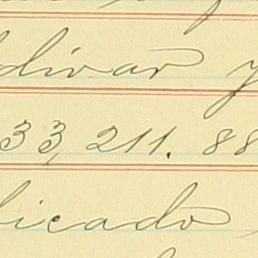 ldivar y
33,211.88
licado